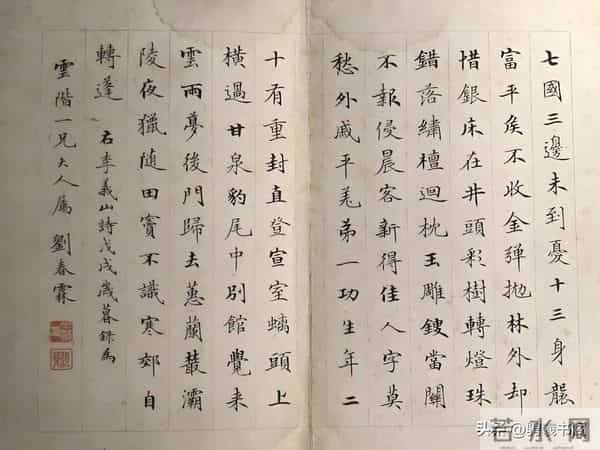 七國三邊未到憂十三身襲
富平侯不收金彈拋林外却
惜銀床在井頭彩樹轉燈珠
錯落繡檀迴枕玉雕鎪當關
不報侵晨客新得佳人字莫
愁外戚平羌第一功生年二
十有重封直登宣室螭頭上
橫過甘泉豹尾中別館覺來
雲雨夢後門歸去蕙蘭叢灞
陵夜獵隨田竇不識寒郊自
轉蓬 右李義山詩戊戌歲暮錄爲
雲階一兄大人屬 劉春霖
若水网
头条